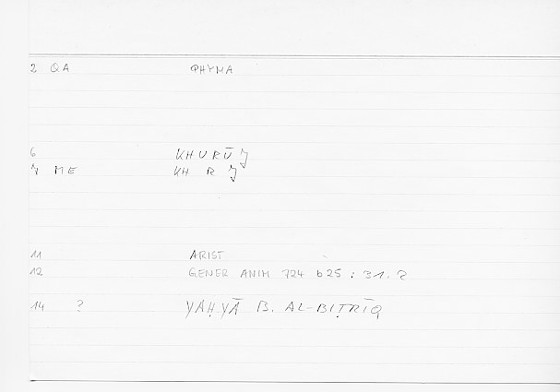 2 QA PHYMA
6 KHURŪJ
7 ME KH R J
11 ARIST
12 GENER ANIM 724 b25 ; 31.2
14 ? YAḤYĀ B. AL-BIṬRĪQ